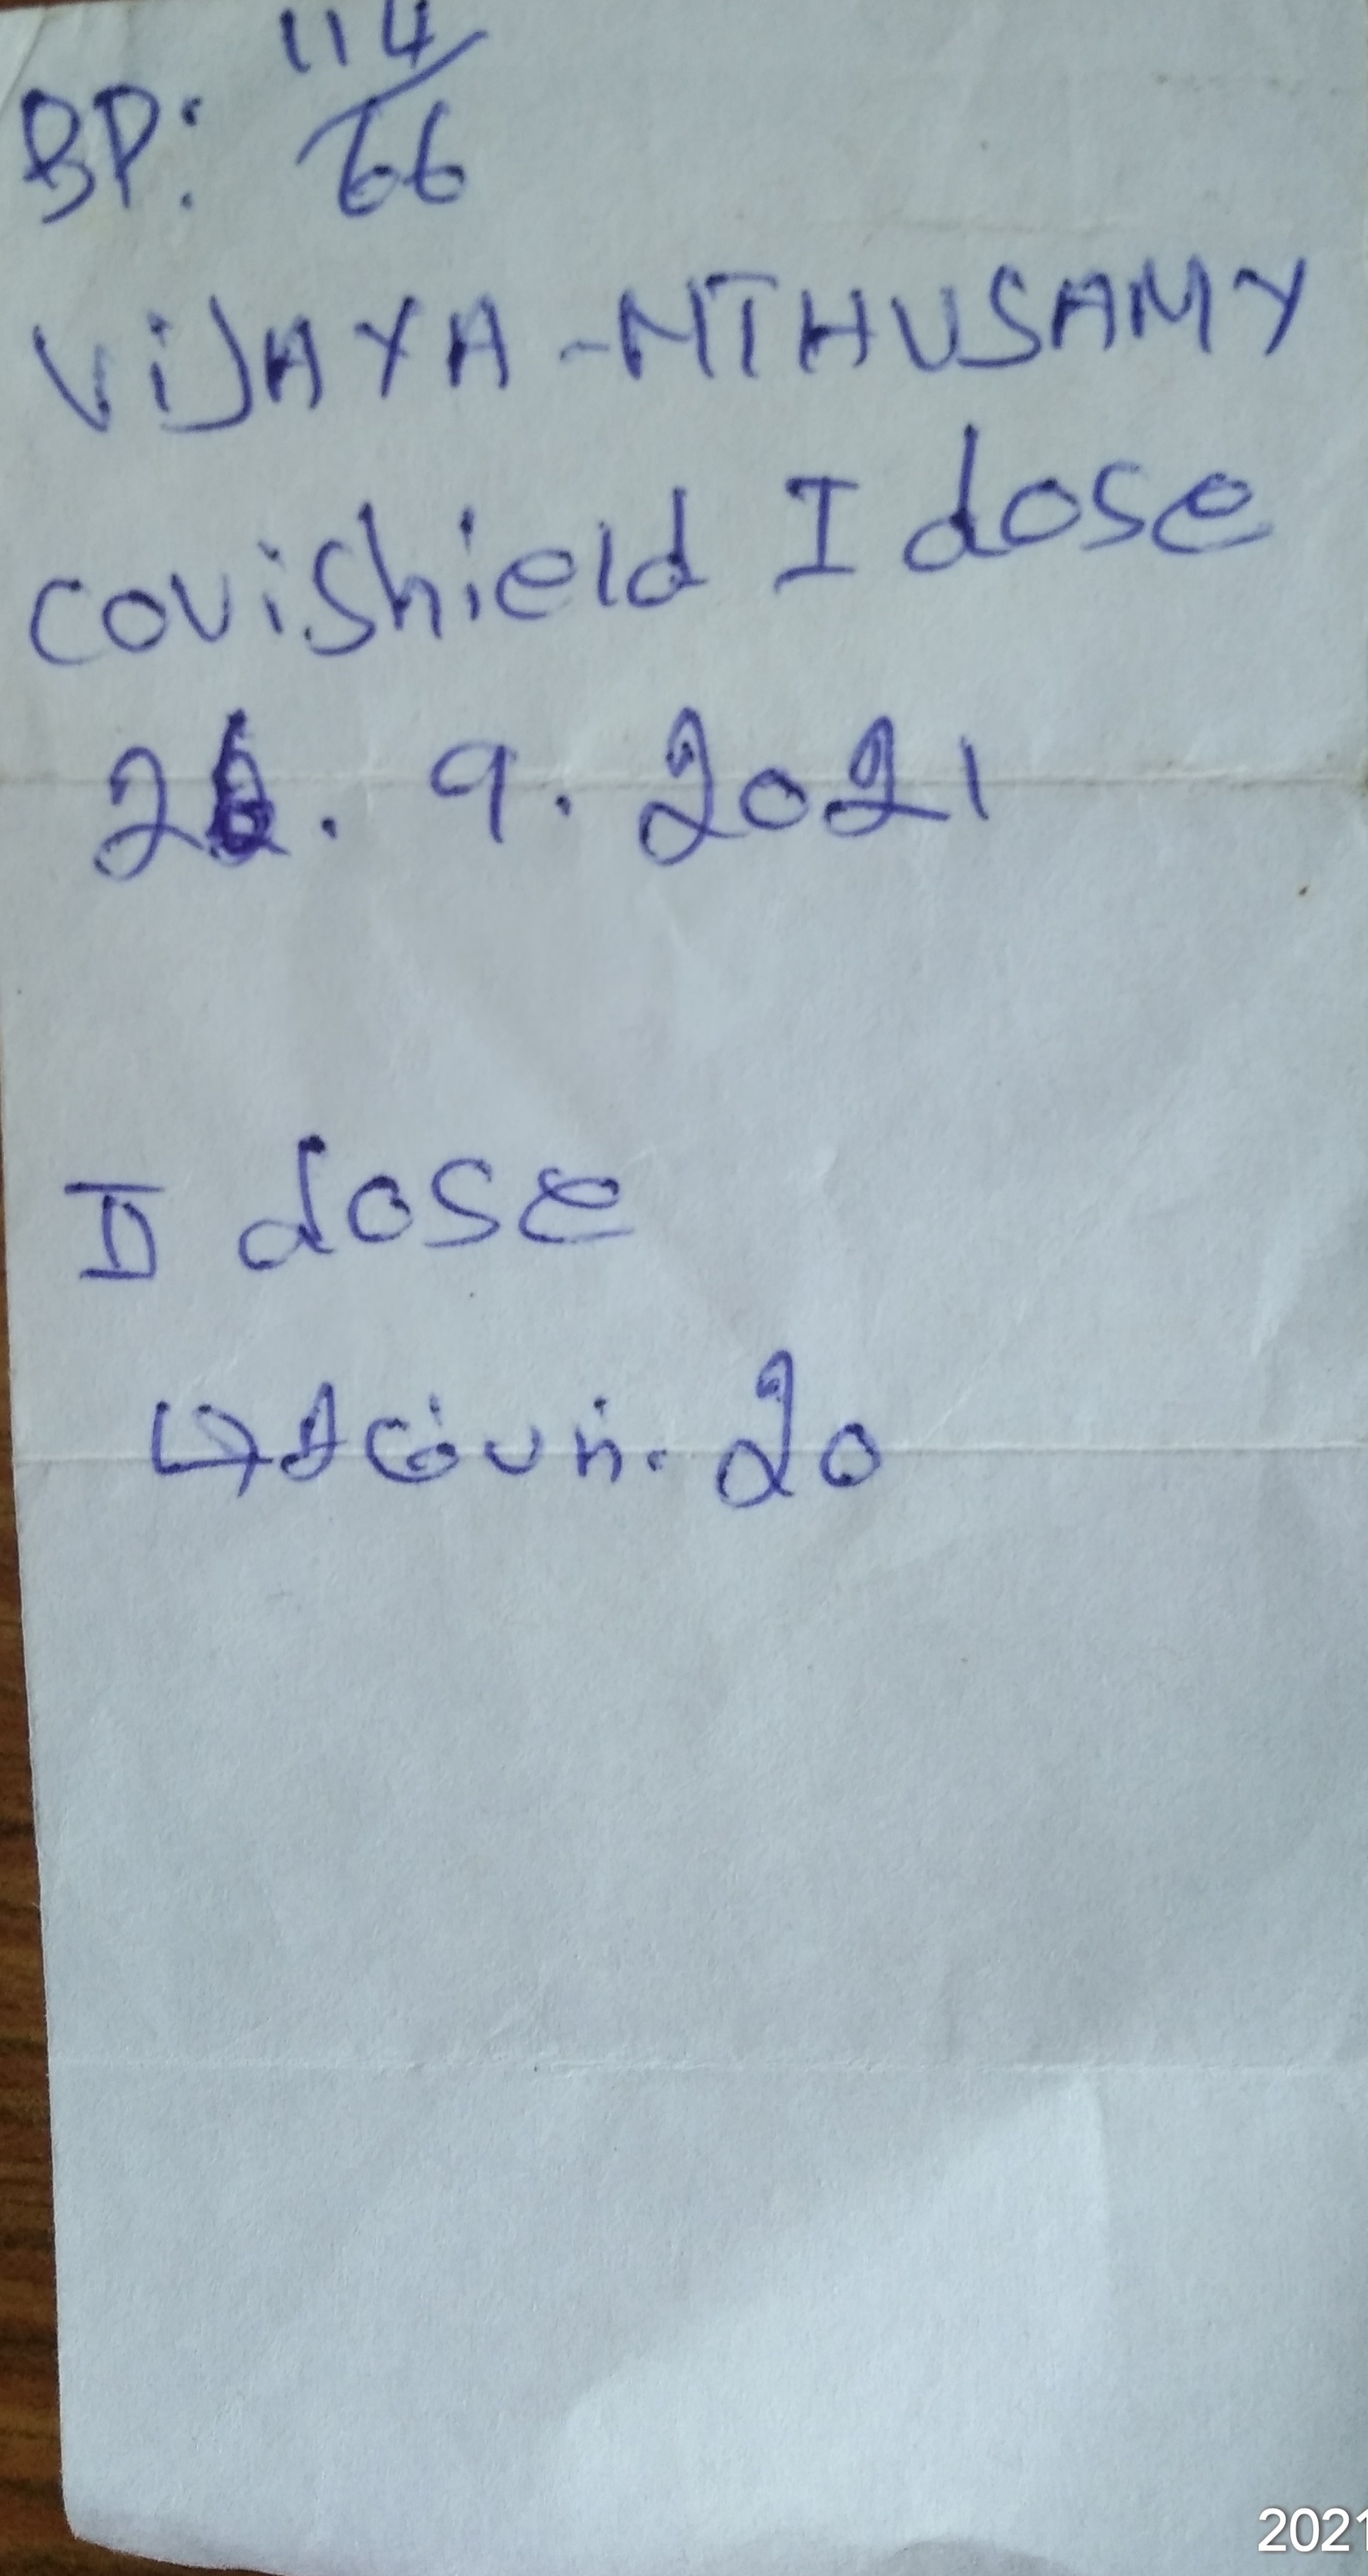 BP: 114/66
ViJAYA-MTHUSAMY
covishield I dose
9. 2021
II dose
டிசம்பர். 20
2021